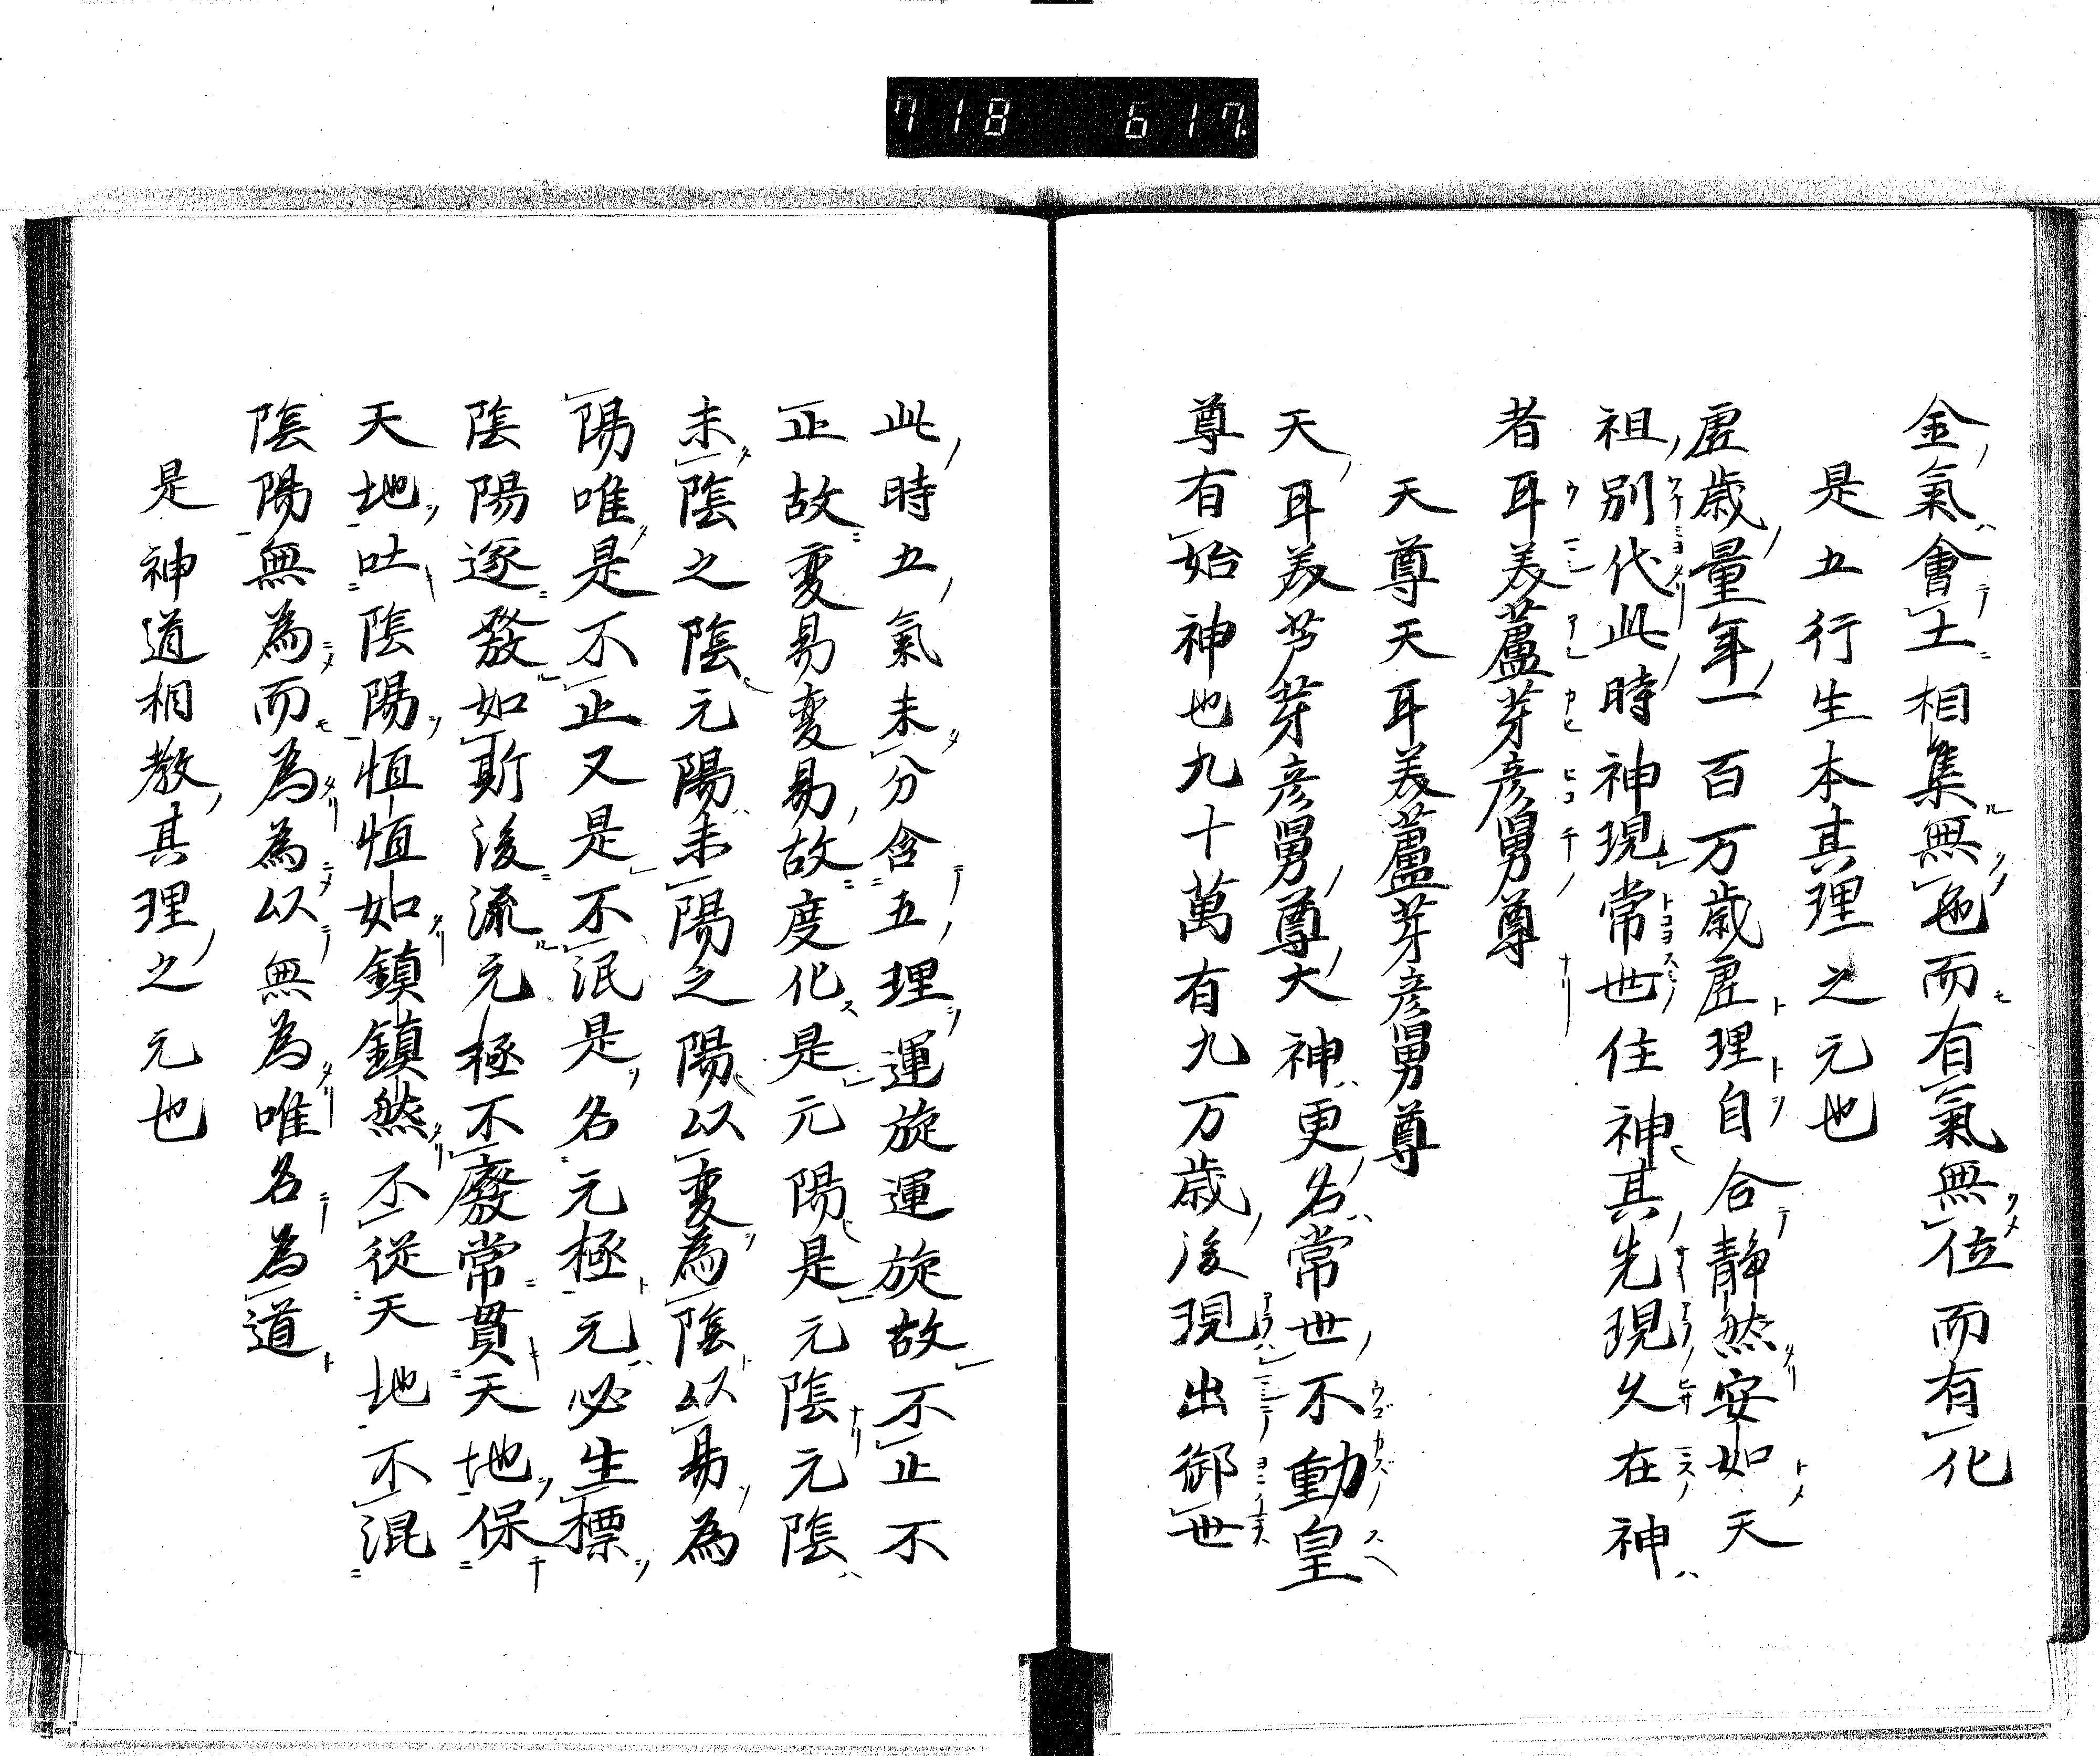 718 617.
金氣會土相集無色而有氣無位而有化
是五行生本其理之元也
虚歳量年一百万歳虚理自合静然安如天
祖別代此時神現常世住神其先現久在神
者耳美蘆芽彦舅尊
天尊天耳美蘆芽彦舅尊
天耳美芽彦舅尊大神更名常世不動皇
尊有始神也九十萬有九万歳後現出御世
此時五氣未分含五理運旋運旋故不止不
止故変易変易故度化是元陽是元陰元陰
未陰之陰元陽未陽之陽以変為陰以易為
陽唯是不止又是不泯是名元極元必生標
陰陽逐發如斯後流元極不廢常貫天地保
天地吐陰陽恒恒如鎮鎮然不從天地不混
陰陽無為而為為以無為唯名為道
是神道相教其理之元也